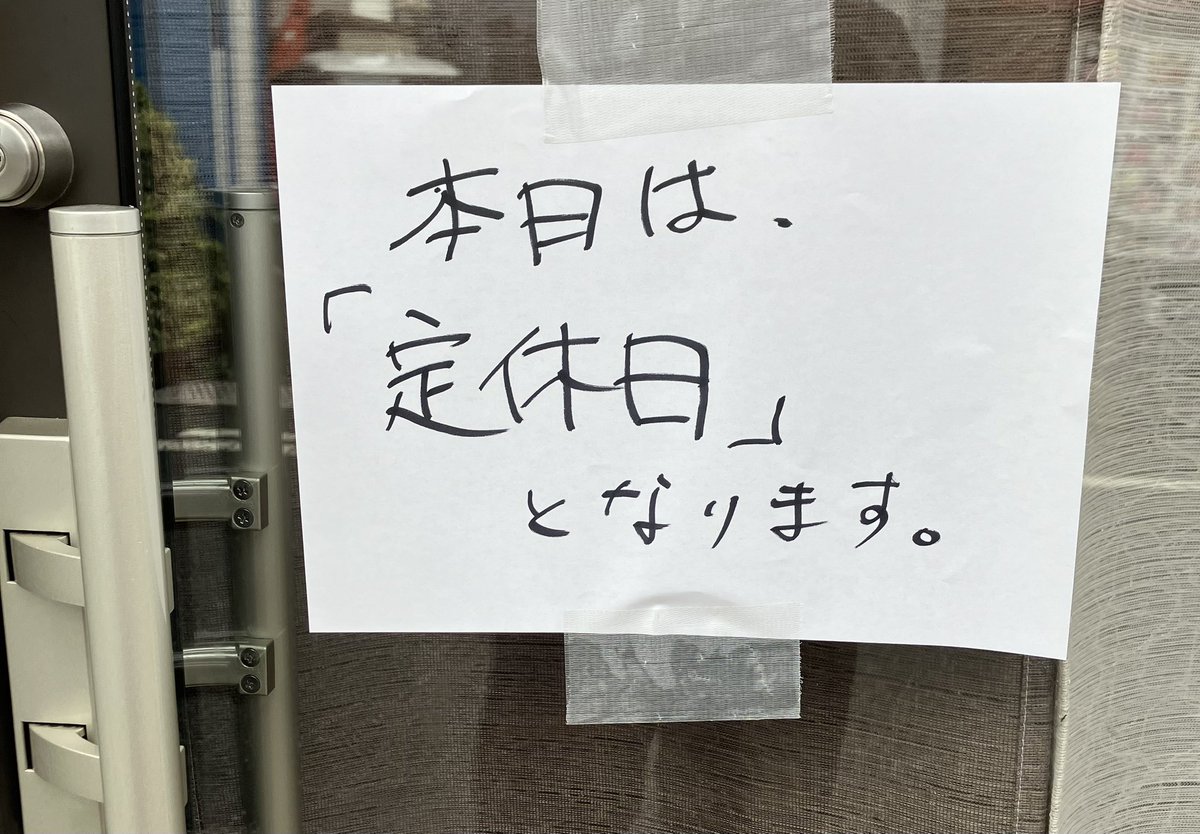 本日は、
「定休日」
となります。